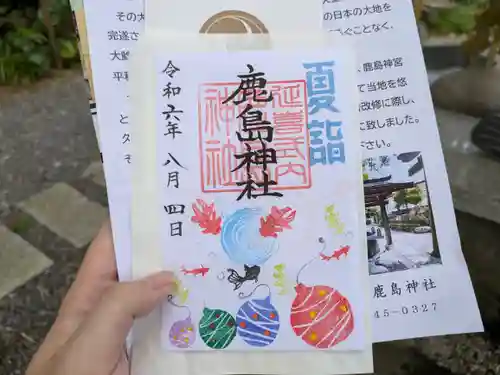 その大
の日本の大地を
完遂され
ぐことなく、
鹿島神宮
平和
て当地を悠
改修に際し、
と
に致しました。
久
下さい。
夏詣
延喜式内
鹿島神社
令和六年 八月 四日
鹿島神社
45-0327